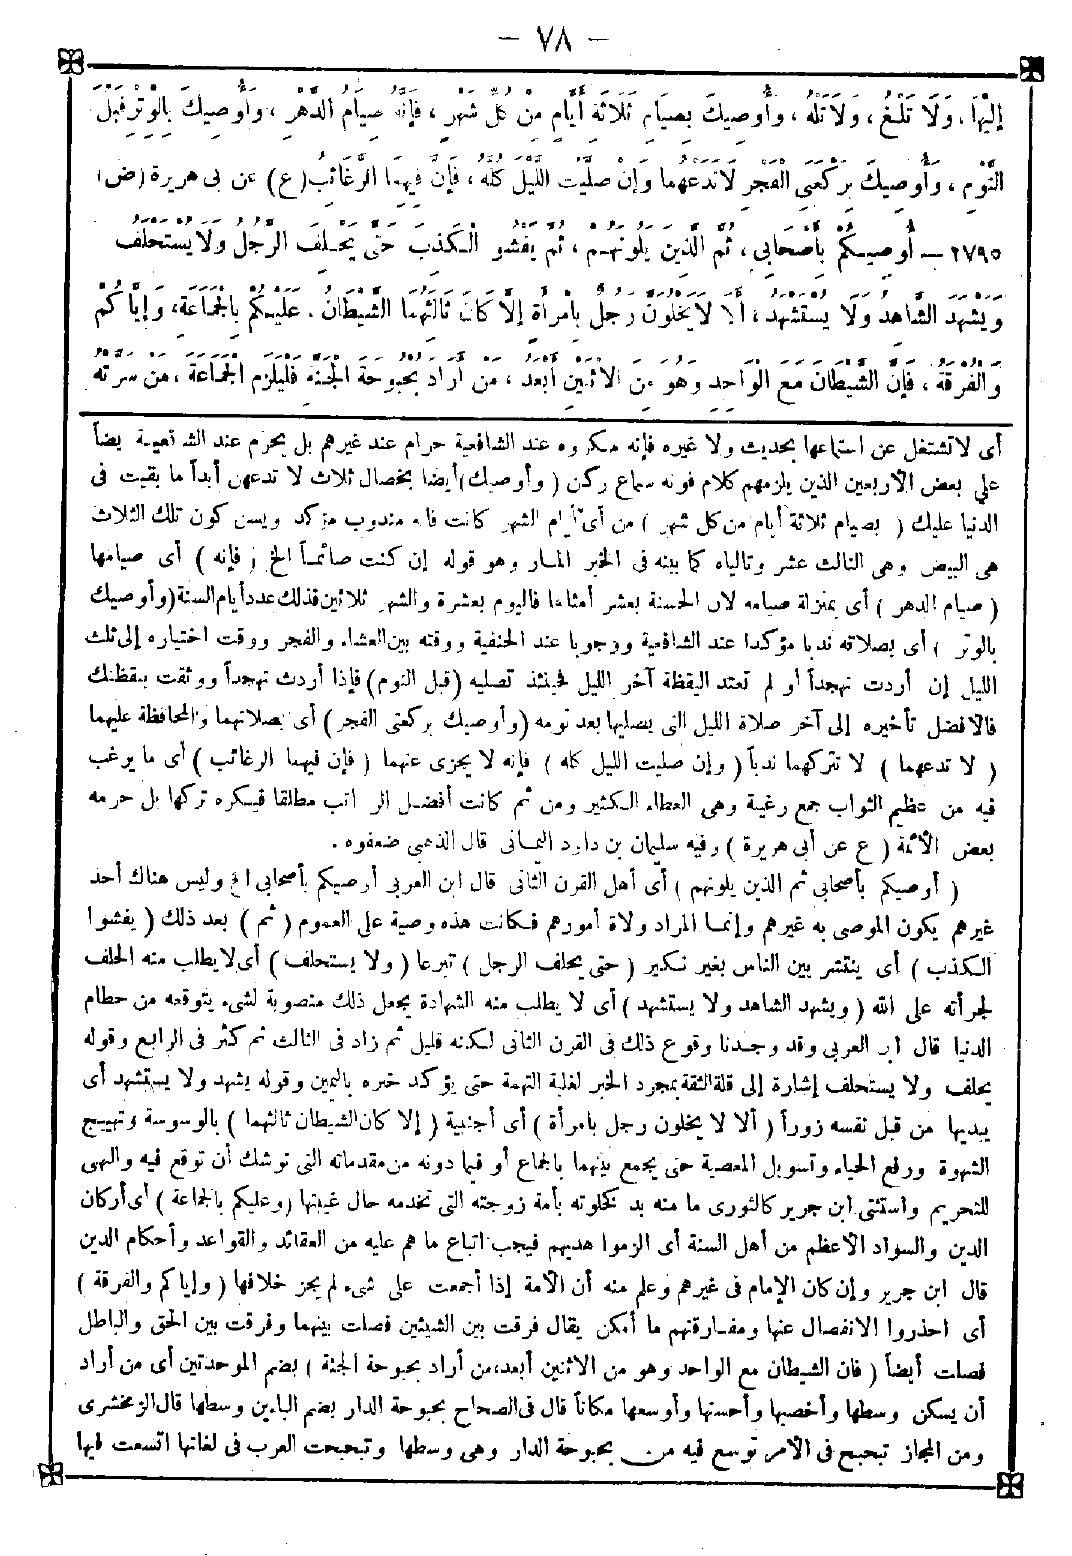 - ٧٨ -
إِلَيْهَا ، وَلَا تَلْغُ ، وَلَا تَلْهُ ، وَأُوصِيكَ بِصِيَامِ ثَلَاثَةِ أَيَّامٍ مِنْ كُلِّ شَهْرٍ ، فَإِنَّهُ صِيَامُ الدَّهْرِ ، وَأُوصِيكَ بِالْوِتْرِ قَبْلَ
النَّوْمِ ، وَأُوصِيكَ بِرَكْعَتَيِ الْفَجْرِ لَا تَدَعْهُمَا وَإِنْ صَلَّيْتَ اللَّيْلَ كُلَّهُ ، فَإِنَّ فِيهِمَا الرَّغَائِبُ (ع) عن بى هريرة (ض)
٢٧٩٥ — أُوصِيكُمْ بِأَصْحَابِي ، ثُمَّ الَّذِينَ يَلُونَهُمْ ، ثُمَّ يَفْشُو الْكَذِبَ حَتَّى يَحْلِفَ الرَّجُلُ وَلَا يُسْتَحْلَفُ
وَيَشْهَدَ الشَّاهِدُ وَلَا يُسْتَشْهَدُ ، أَلَا لَا يَخْلُوَنَّ رَجُلٌ بِامْرَأَةٍ إِلَّا كَانَ ثَالِثُهُمَا الشَّيْطَانُ . عَلَيْكُمْ بِالْجَمَاعَةِ ، وَإِيَّاكُمْ
وَالْفُرْقَةَ ، فَإِنَّ الشَّيْطَانَ مَعَ الْوَاحِدِ وَهُوَ مِنَ الِاثْنَيْنِ أَبْعَدُ ، مَنْ أَرَادَ بُحْبُوحَةَ الْجَنَّةِ فَلْيَلْزَمِ الْجَمَاعَةَ ، مَنْ سَرَّتْهُ
أى لا تشتغل عن استماعها بحديث ولا غيره فإنه مكروه عند الشافعية حرام عند غيرهم بل يحرم عند الشافعية بضاً
على بعض الأربعين الذين يلزمهم كلام فوته سماع ركن ( وأوصيك ) أيضا بخصال ثلاث لا تدعهن أبداً ما بقيت فى
الدنيا عليك ( بصيام ثلاثة أيام من كل شهر ) من أى أيام الشهر كانت فإنه مندوب مؤكد ويسن كون تلك الثلاث
هى البيض وهى الثالث عشر وتالياه كما بينه فى الخبر المار وهو قوله إن كنت صائماً الخ ( فإنه ) أى صيامها
( صيام الدهر ) أى بمنزلة صيامه لأن الحسنة بعشر أمثالها فاليوم بعشرة والشهر ثلاثين فذلك عدد أيام السنة ( وأوصيك
بالوتر ) أى بصلاته ندبا مؤكدا عند الشافعية ووجوبا عند الحنفية ووقته بين العشاء والفجر ووقت اختياره إلى ثلث
الليل إن أردت تهجداً أو لم تعتد اليقظة آخر الليل فحينئذ تصليه (قبل النوم) فإذا أردت تهجداً ووثقت بيقظتك
فالأفضل تأخيره إلى آخر صلاة الليل التى يصليها بعد نومه ( وأوصيك بركعتى الفجر ) أى بصلاتهما والمحافظة عليهما
( لا تدعهما ) لا تتركهما ندباً ( وإن صليت الليل كله ) فإنه لا يجزى عنهما ( فإن فيهما الرغائب ) أى ما يرغب
فيه من عظيم الثواب جمع رغيبة وهى العطاء الكثير ومن ثم كانت أفضل الرواتب مطلقا فيكره تركها بل حرمه
بعض الأئمة ( ع عن أبى هريرة ) وفيه سليمان بن داود اليمانى قال الذهبى ضعفوه .
( أوصيكم بأصحابى ثم الذين يلونهم ) أى أهل القرن الثانى قال ابن العربى أوصيكم بأصحابى الخ وليس هناك أحد
غيرهم يكون الموصى به غيرهم وإنما المراد ولاة أمورهم فكانت هذه وصية على العموم ( ثم ) بعد ذلك ( يفشوا
الكذب ) أى ينتشر بين الناس بغير نكير ( حتى يحلف الرجل ) تبرعا ( ولا يستحلف ) أى لا يطلب منه الحلف
لجرأته على الله ( ويشهد الشاهد ولا يستشهد ) أى لا يطلب منه الشهادة يجعل ذلك منصوبة لشىء يتوقعه من حطام
الدنيا قال ابن العربى وقد وجدنا وقوع ذلك فى القرن الثانى لكنه قليل ثم زاد فى الثالث ثم كثر فى الرابع وقوله
يحلف ولا يستحلف إشارة إلى قلة الثقة بمجرد الخبر لغلبة التهمة حتى يؤكد خبره باليمين وقوله يشهد ولا يستشهد أى
يبديها من قبل نفسه زوراً ( ألا لا يخلون رجل بامرأة ) أى أجنبية ( إلا كان الشيطان ثالثهما ) بالوسوسة وتهييج
الشهوة ورفع الحياء وتسويل المعصية حتى يجمع بينهما بالجماع أو فيما دونه من مقدماته التى توشك أن توقع فيه والنهى
للتحريم واستثنى ابن جرير كالثورى ما منه بد كخلوته بأمة زوجته التى تخدمه حال غيبتها ( وعليكم بالجماعة ) أى أركان
الدين والسواد الأعظم من أهل السنة أى الزموا هديهم فيجب اتباع ما هم عليه من العقائد والقواعد وأحكام الدين
قال ابن جرير وإن كان الإمام فى غيرهم وعلم منه أن الأمة إذا أجمعت على شىء لم يجز خلافها ( وإياكم والفرقة )
أى احذروا الانفصال عنها ومفارقتهم ما أمكن يقال فرقت بين الشيئين فصلت بينهما وفرقت بين الحق والباطل
فصلت أيضاً ( فان الشيطان مع الواحد وهو من الاثنين أبعد، من أراد بحبوحة الجنة ) بضم الموحدتين أى من أراد
أن يسكن وسطها وأخصبها وأحسنها وأوسعها مكاناً قال فى الصحاح بحبوحة الدار بضم الباءين وسطها قال الزمخشرى
ومن المجاز تبحبح فى الأمر توسع فيه من بحبوحة الدار وهى وسطها وتبحبحت العرب فى لغاتها اتسعت فيها